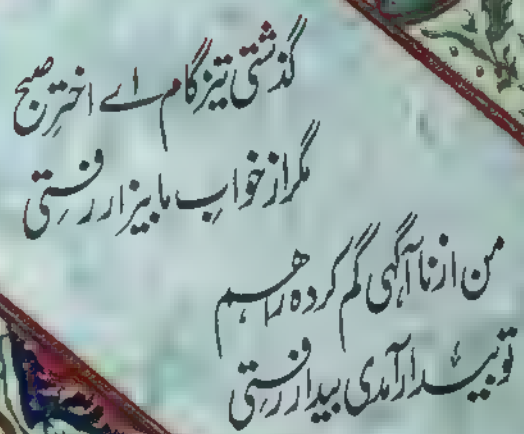 گذشتی تیزگام اے اختر صبح
مگر از خوابِ ما بیزار رفتی
من از نا آگہی گم کردہ راہم
تو بیدار آمدی بیدار رفتی